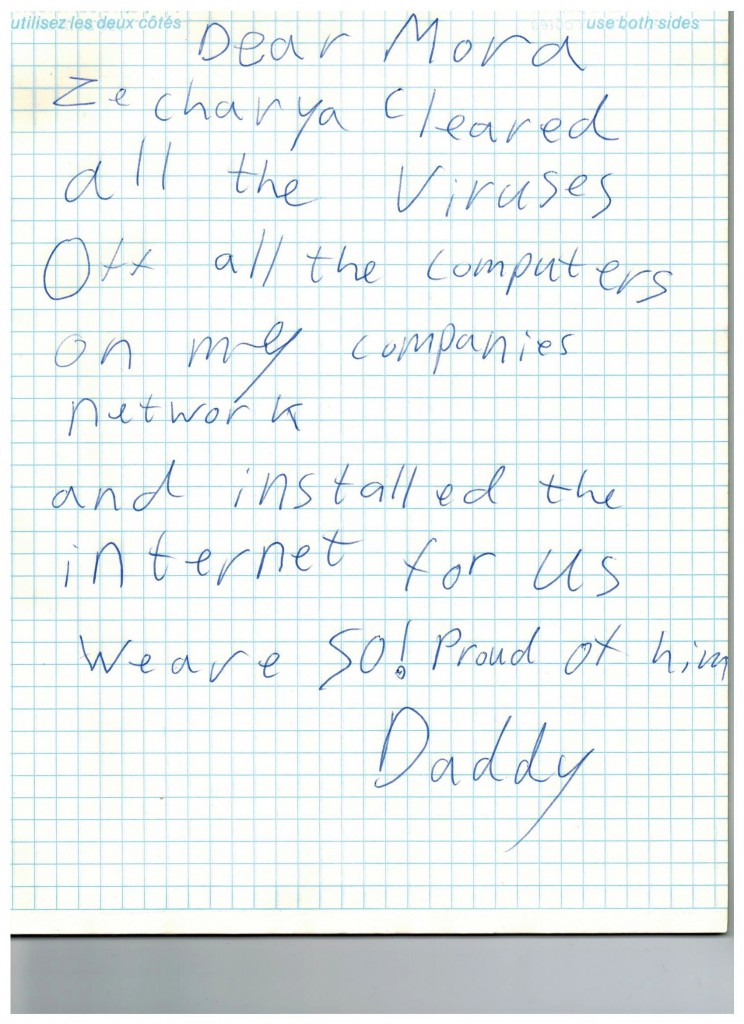 utilisez les deux côtés use both sides
Dear Mora
Zecharya Cleared
all the Viruses
Off all the computers
on my companies
network
and installed the
internet for us
We are SO! Proud of him
Daddy